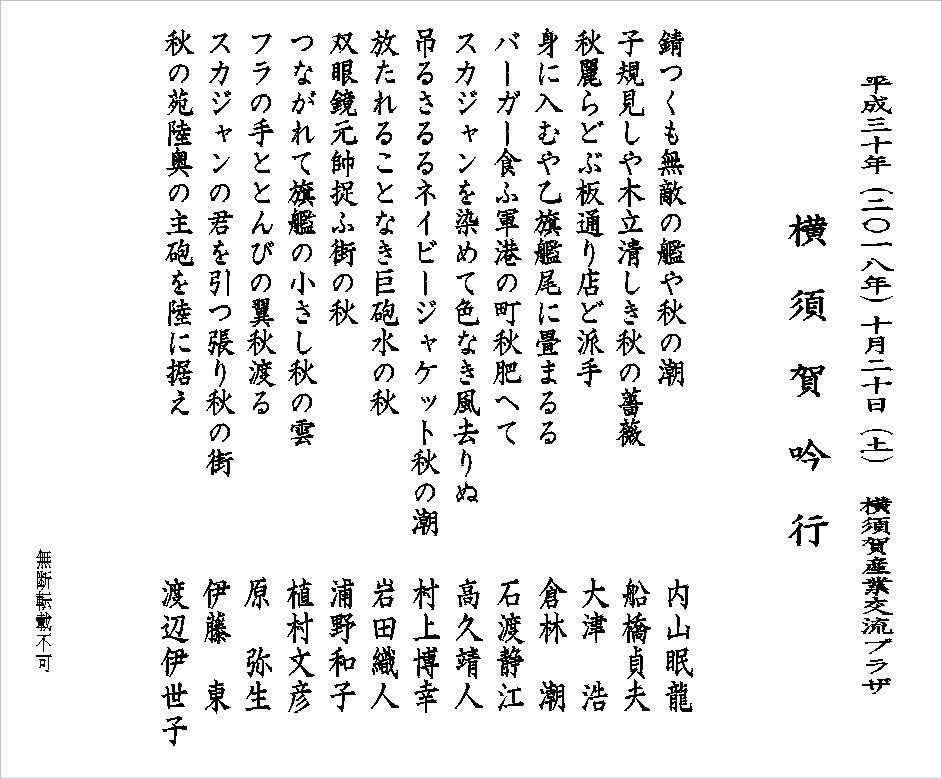 平成三十年（二〇一八年）十月二十日（土）　横須賀産業交流プラザ
横須賀吟行
錆つくも無敵の艦や秋の潮　内山眠龍
子規見しや木立清しき秋の薔薇　船橋貞夫
秋麗らどぶ板通り店ど派手　大津　浩
身に入むや乙旗艦尾に畳まるる　倉林　潮
バーガー食ふ軍港の町秋肥へて　石渡静江
スカジャンを染めて色なき風去りぬ　高久靖人
吊るさるるネイビージャケット秋の潮　村上博幸
放たれることなき巨砲水の秋　岩田織人
双眼鏡元帥捉ふ街の秋　浦野和子
つながれて旗艦の小さし秋の雲　植村文彦
フラの手ととんびの翼秋渡る　原　弥生
スカジャンの君を引つ張り秋の街　伊藤　東
秋の苑陸奥の主砲を陸に据え　渡辺伊世子
無断転載不可